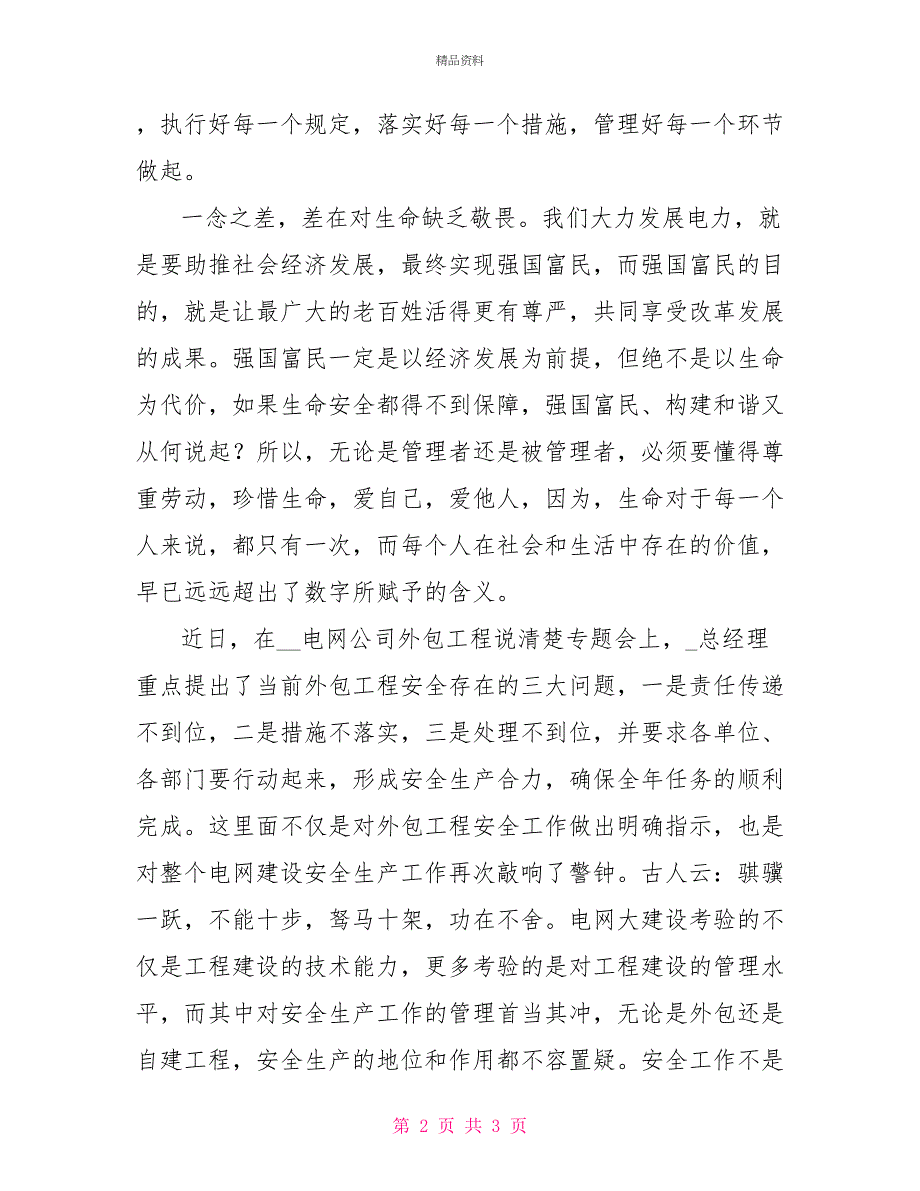 精品资料
，执行好每一个规定，落实好每一个措施，管理好每一个环节
做起。
一念之差，差在对生命缺乏敬畏。我们大力发展电力，就
是要助推社会经济发展，最终实现强国富民，而强国富民的目
的，就是让最广大的老百姓活得更有尊严，共同享受改革发展
的成果。强国富民一定是以经济发展为前提，但绝不是以生命
为代价，如果生命安全都得不到保障，强国富民、构建和谐又
从何说起？所以，无论是管理者还是被管理者，必须要懂得尊
重劳动，珍惜生命，爱自己，爱他人，因为，生命对于每一个
人来说，都只有一次，而每个人在社会和生活中存在的价值，
早已远远超出了数字所赋予的含义。
近日，在__电网公司外包工程说清楚专题会上，_总经理
重点提出了当前外包工程安全存在的三大问题，一是责任传递
不到位，二是措施不落实，三是处理不到位，并要求各单位、
各部门要行动起来，形成安全生产合力，确保全年任务的顺利
完成。这里面不仅是对外包工程安全工作做出明确指示，也是
对整个电网建设安全生产工作再次敲响了警钟。古人云：骐骥
一跃，不能十步，驽马十架，功在不舍。电网大建设考验的不
仅是工程建设的技术能力，更多考验的是对工程建设的管理水
平，而其中对安全生产工作的管理首当其冲，无论是外包还是
自建工程，安全生产的地位和作用都不容置疑。安全工作不是
第 2 页 共 3 页